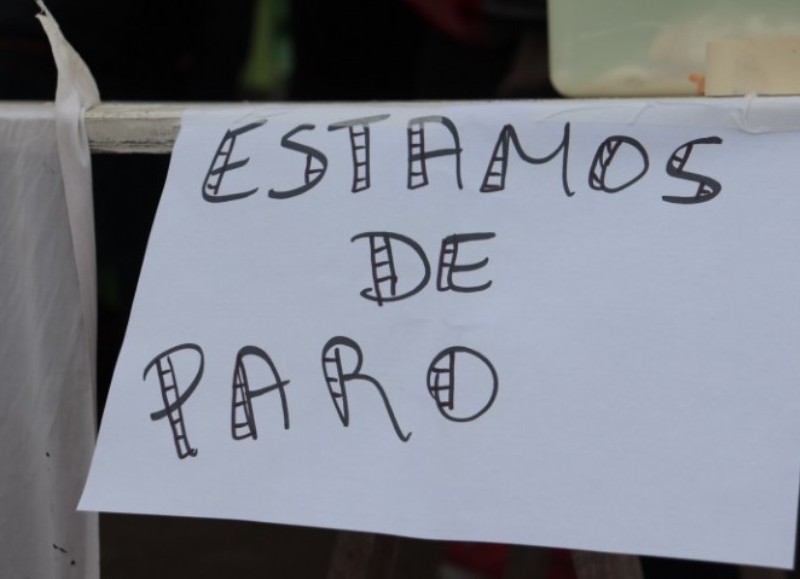 ESTAMOS
DE
PARO